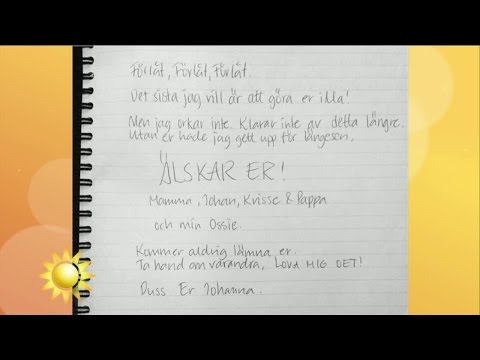 Förlåt, Förlåt, Förlåt.
Det sista jag vill är att göra er illa!
Men jag orkar inte. Klarar inte av detta längre.
Utan er hade jag gett upp för längesen.
ÄLSKAR ER!
Mamma, Johan, Krisse & Pappa
och min Ossie.
Kommer aldrig lämna er.
Ta hand om varandra, LOVA MIG DET!
Puss Er Johanna.